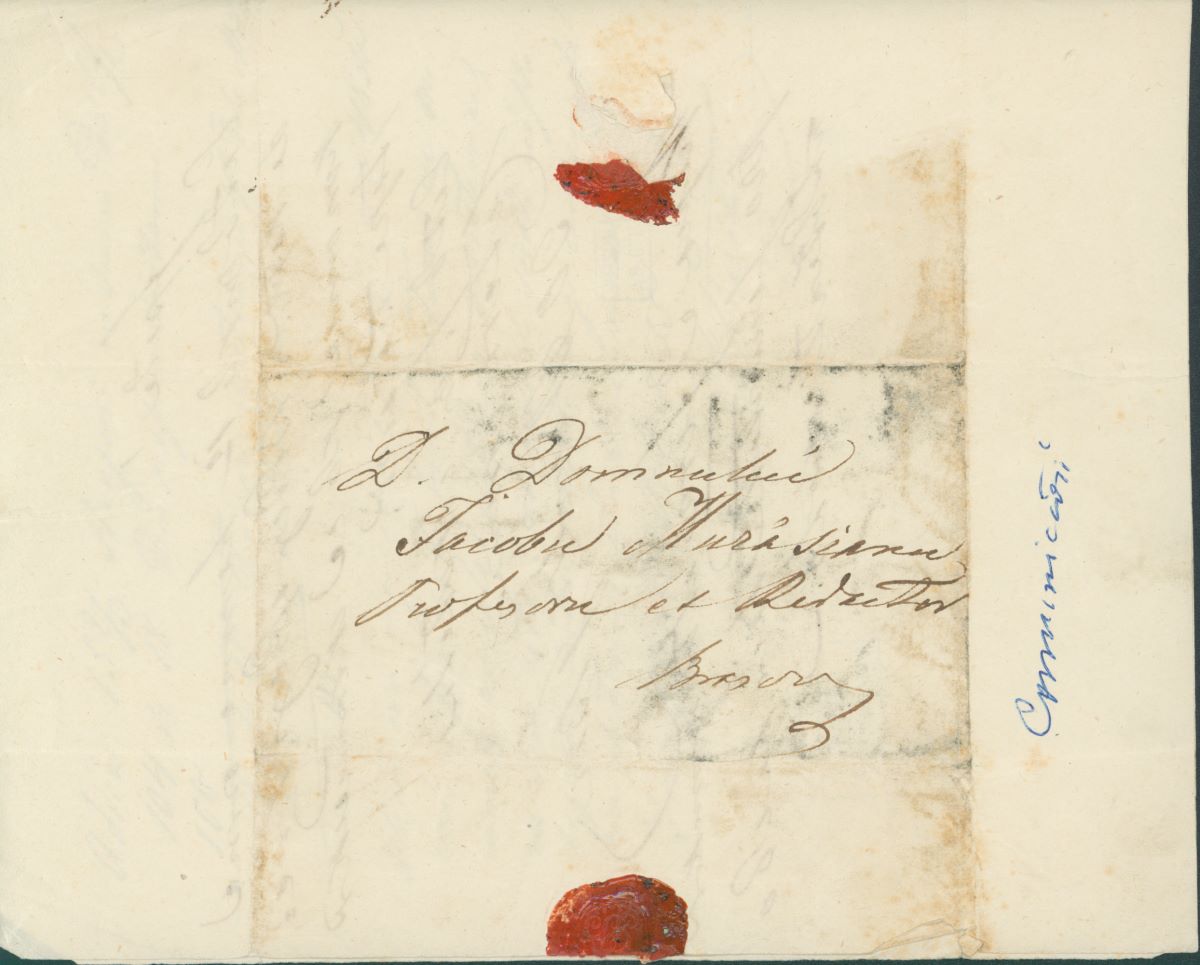 D. Domnului
Jacobu Murásianu
Profesoru et Redactor
Brasov
Comunicări